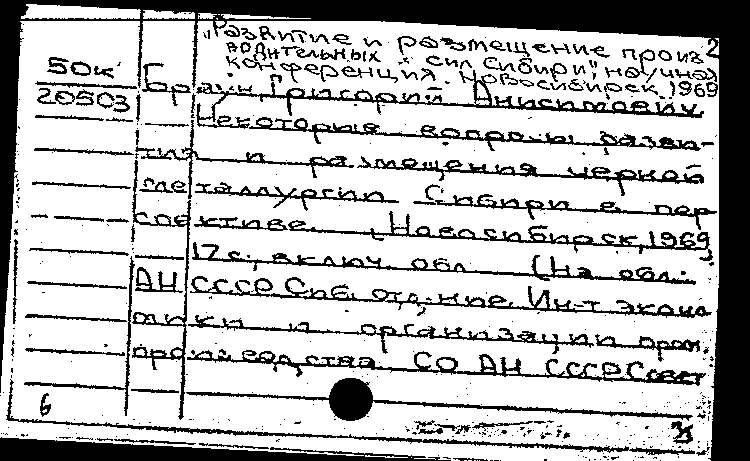 „Развитие и размещение произ- 2
водительных сил Сибири", научная
конференция. Новосибирск, 1969
50к
20503
Браун, Григорий Анисимович
Некоторые вопросы разви-
тия и размещения черной
металлургии Сибири в пер
спективе. [Новосибирск, 1969]
17 с., включ. обл. (На обл.:
АН СССР Сиб. отд-ние. Ин-т эконо
мики и организации пром.
производства СО АН СССР Совет
6